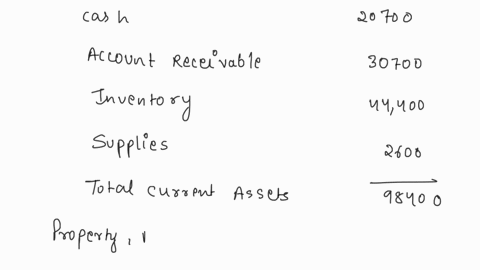 cash 20700
Account Receivable 30700
Inventory 44,400
Supplies 2600
Total current Assets 98400
Property,